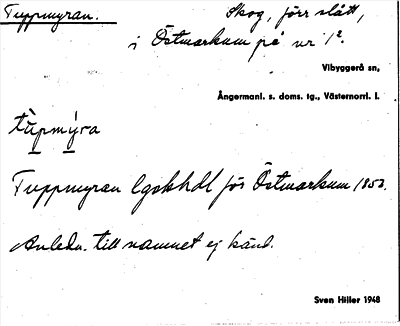 Tuppmyran. Skog, förr slått,
i Östmarkum på nr 1².
Vibyggerå sn,
Ångermanl. s. doms. tg., Västernorrl. l.
tùpmýra
Tuppmyran Lgskhdl för Östmarkum 1850.
Anledn. till namnet ej känd.
Sven Hiller 1948